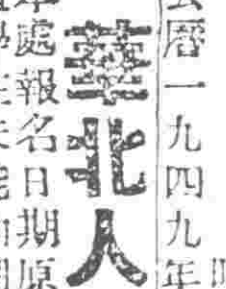 公曆一九四九年
華北人
處報名日期原